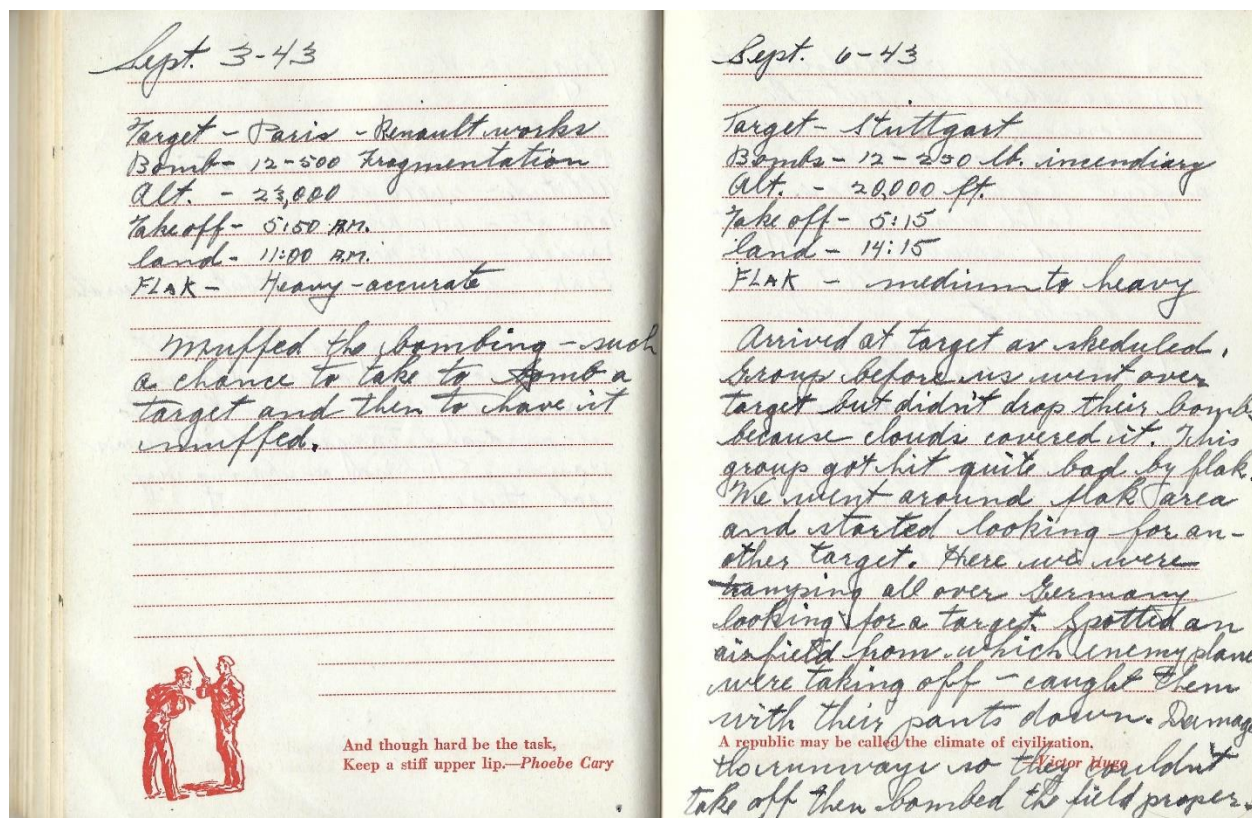 Sept. 3-43
Target - Paris - Renault works
Bomb - 12-500 Fragmentation
Alt. - 23,000
Takeoff - 5:50 A.M.
land - 11:00 A.M.
FLAK - Heavy - accurate
Muffed the bombing - such
a chance to take to bomb a
target and then to have it
muffed.
And though hard be the task,
Keep a stiff upper lip.—Phoebe Cary
Sept. 6-43
Target - Stuttgart
Bombs - 12 - 250 lb. incendiary
Alt. - 20,000 ft.
Take off - 5:15
land - 14:15
FLAK - medium to heavy
Arrived at target as skeduled.
Group before us went over
target but didn't drop their bombs
because clouds covered it. This
group got hit quite bad by flak.
We went around flak area
and started looking for an-
other target. Here we were
tramping all over Germany
looking for a target. Spotted an
airfield from which enemy plane
were taking off - caught them
with their pants down. Damage
A republic may be called the climate of civilization.
—Victor Hugo
the runways so they couldn't
take off then bombed the field proper.